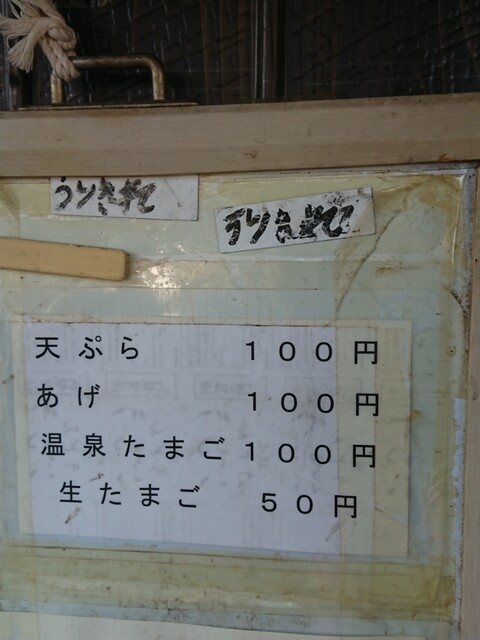 うりきれて
うりきれて
天ぷら １００円
あげ １００円
温泉たまご１００円
生たまご ５０円